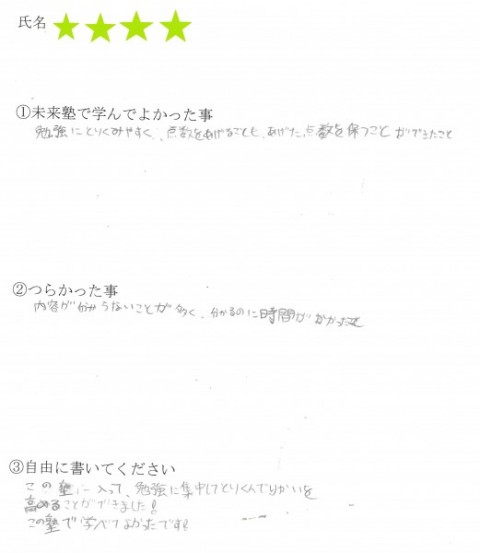 氏名
①未来塾で学んでよかった事
勉強にとりくみやすく、点数をあげることも、あげた点数を保つことができたこと
②つらかった事
内容が分からないことが多く、分かるのに時間がかかった
③自由に書いてください
この塾に入って、勉強に集中してとりくんでりかいを
高めることができました!
この塾で学べてよかったです!